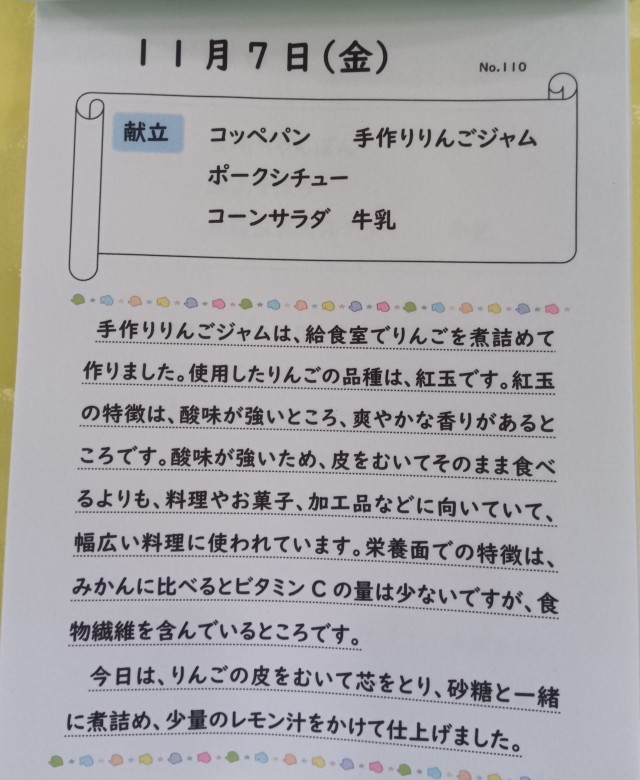 11月7日(金)
No.110
献立 コッペパン 手作りりんごジャム
ポークシチュー
コーンサラダ 牛乳
手作りりんごジャムは、給食室でりんごを煮詰めて
作りました。使用したりんごの品種は、紅玉です。紅玉
の特徴は、酸味が強いところ、爽やかな香りがあると
ころです。酸味が強いため、皮をむいてそのまま食べ
るよりも、料理やお菓子、加工品などに向いていて、
幅広い料理に使われています。栄養面での特徴は、
みかんに比べるとビタミンCの量は少ないですが、食
物繊維を含んでいるところです。
今日は、りんごの皮をむいて芯をとり、砂糖と一緒
に煮詰め、少量のレモン汁をかけて仕上げました。